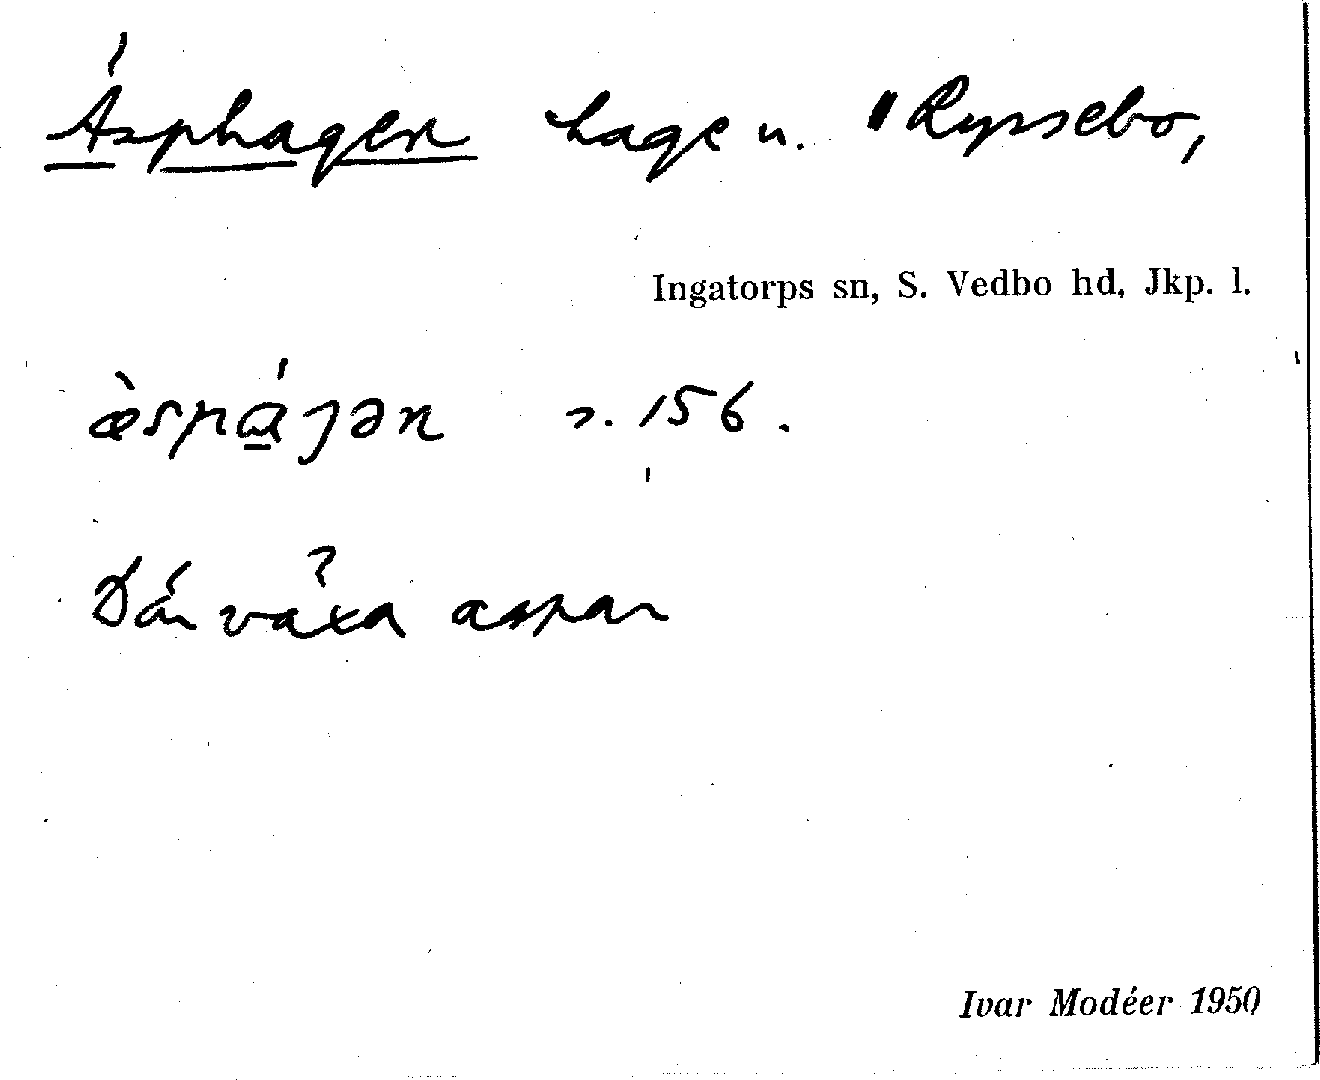 Asphagen hage u. "Ryssebo,
Ingatorps sn, S. Vedbo hd, Jkp. l.
æ̀spɑ̲́ȷən s. 156.
Där växa aspar
Ivar Modéer 1950